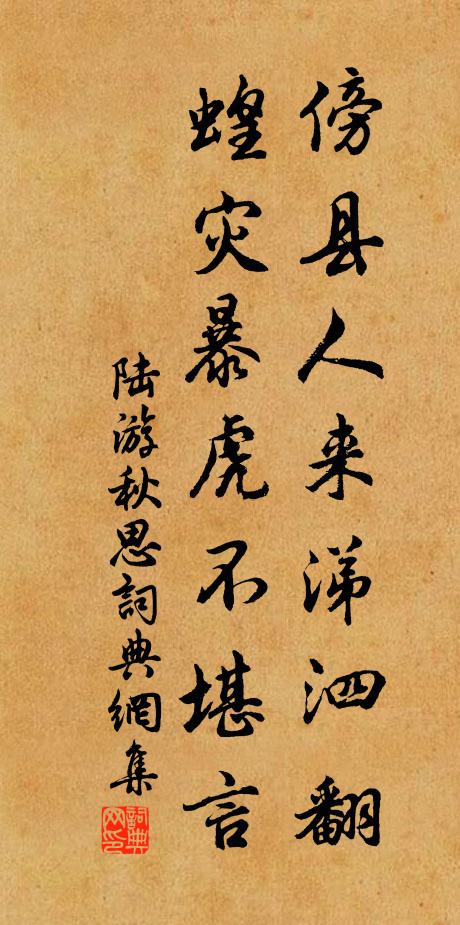 傍县人来涕泗翻
蝗灾暴虎不堪言
陆游秋思詞典網集
詞典网印